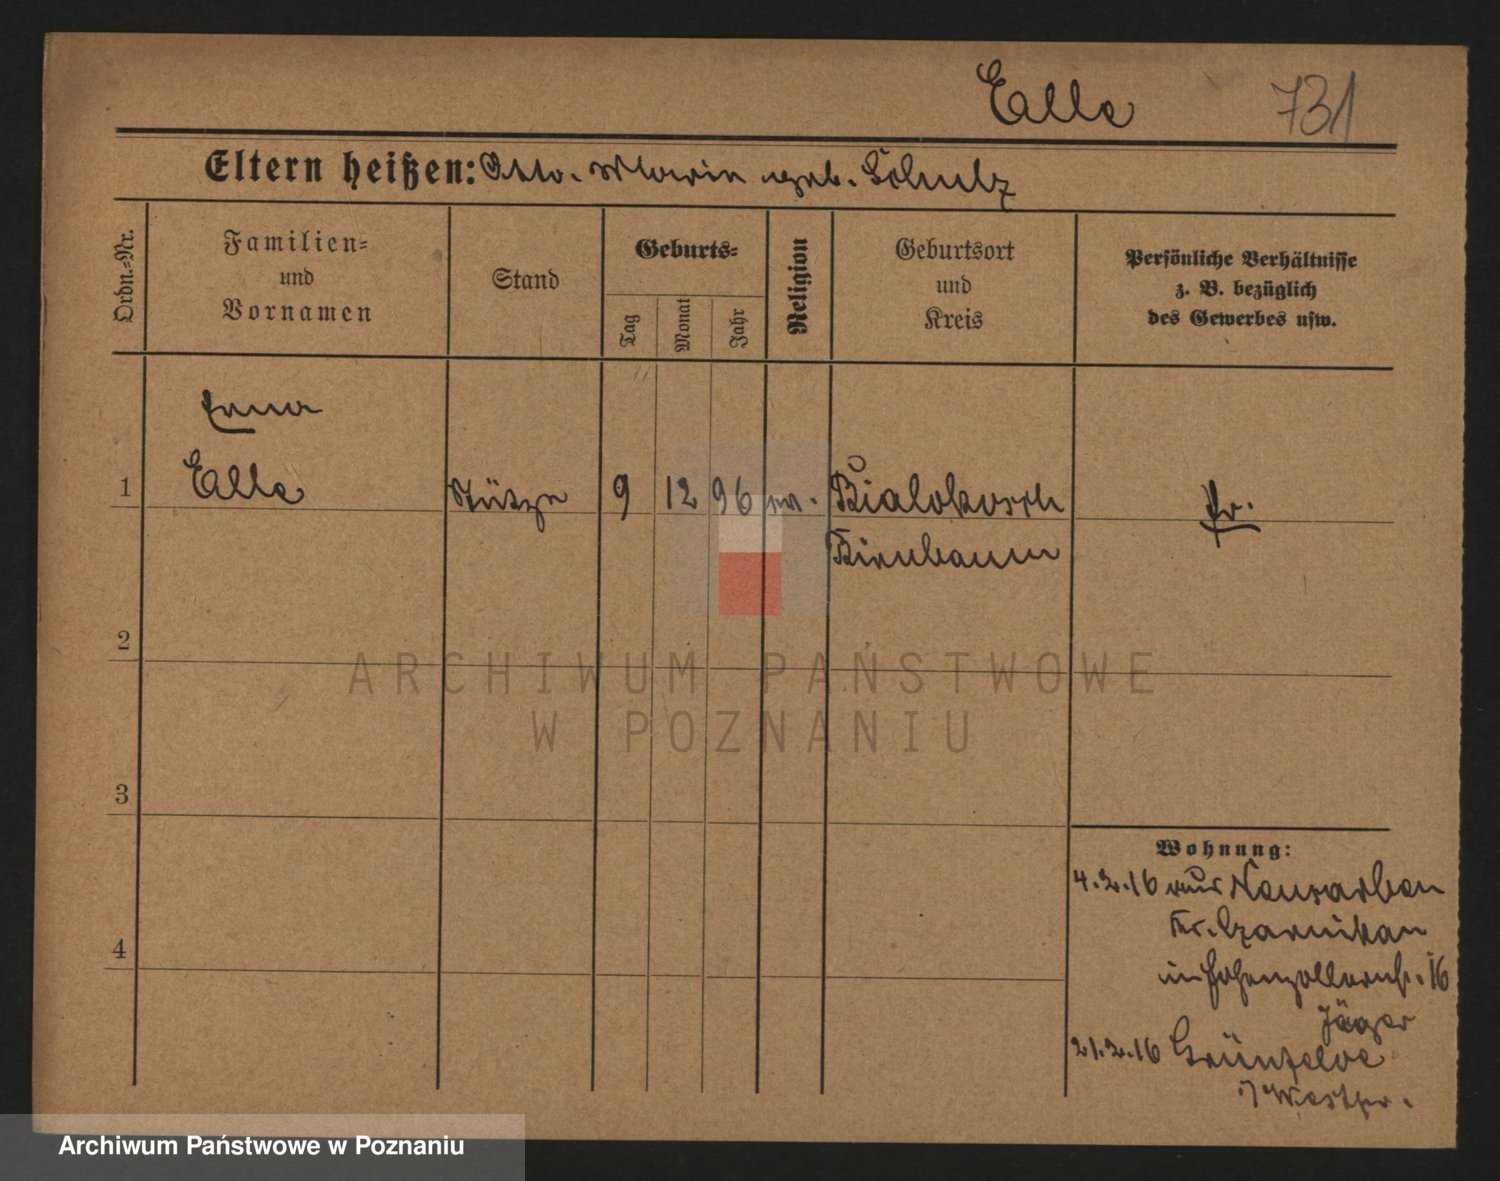 Elle 731
Eltern heißen: Otto. Marie geb. Schulz
Ordn.=Nr.
Familien=
und
Vornamen
Stand
Geburts=
Tag
Monat
Jahr
Religion
Geburtsort
und
Kreis
Persönliche Verhältnisse
z. B. bezüglich
des Gewerbes usw.
Erna
1 Elle Stütze 9 12 96 Bialokosch Pr.
Birnbaum
2
3
4
Wohnung:
4.2.16 aus Neusarben
Kr. Czarnikau
in Hohenzollernstr. 16
Jäger
21.2.16 Grünfelde
i/Westpr.
ARCHIWUM PAŃSTWOWE
W POZNANIU
Archiwum Państwowe w Poznaniu